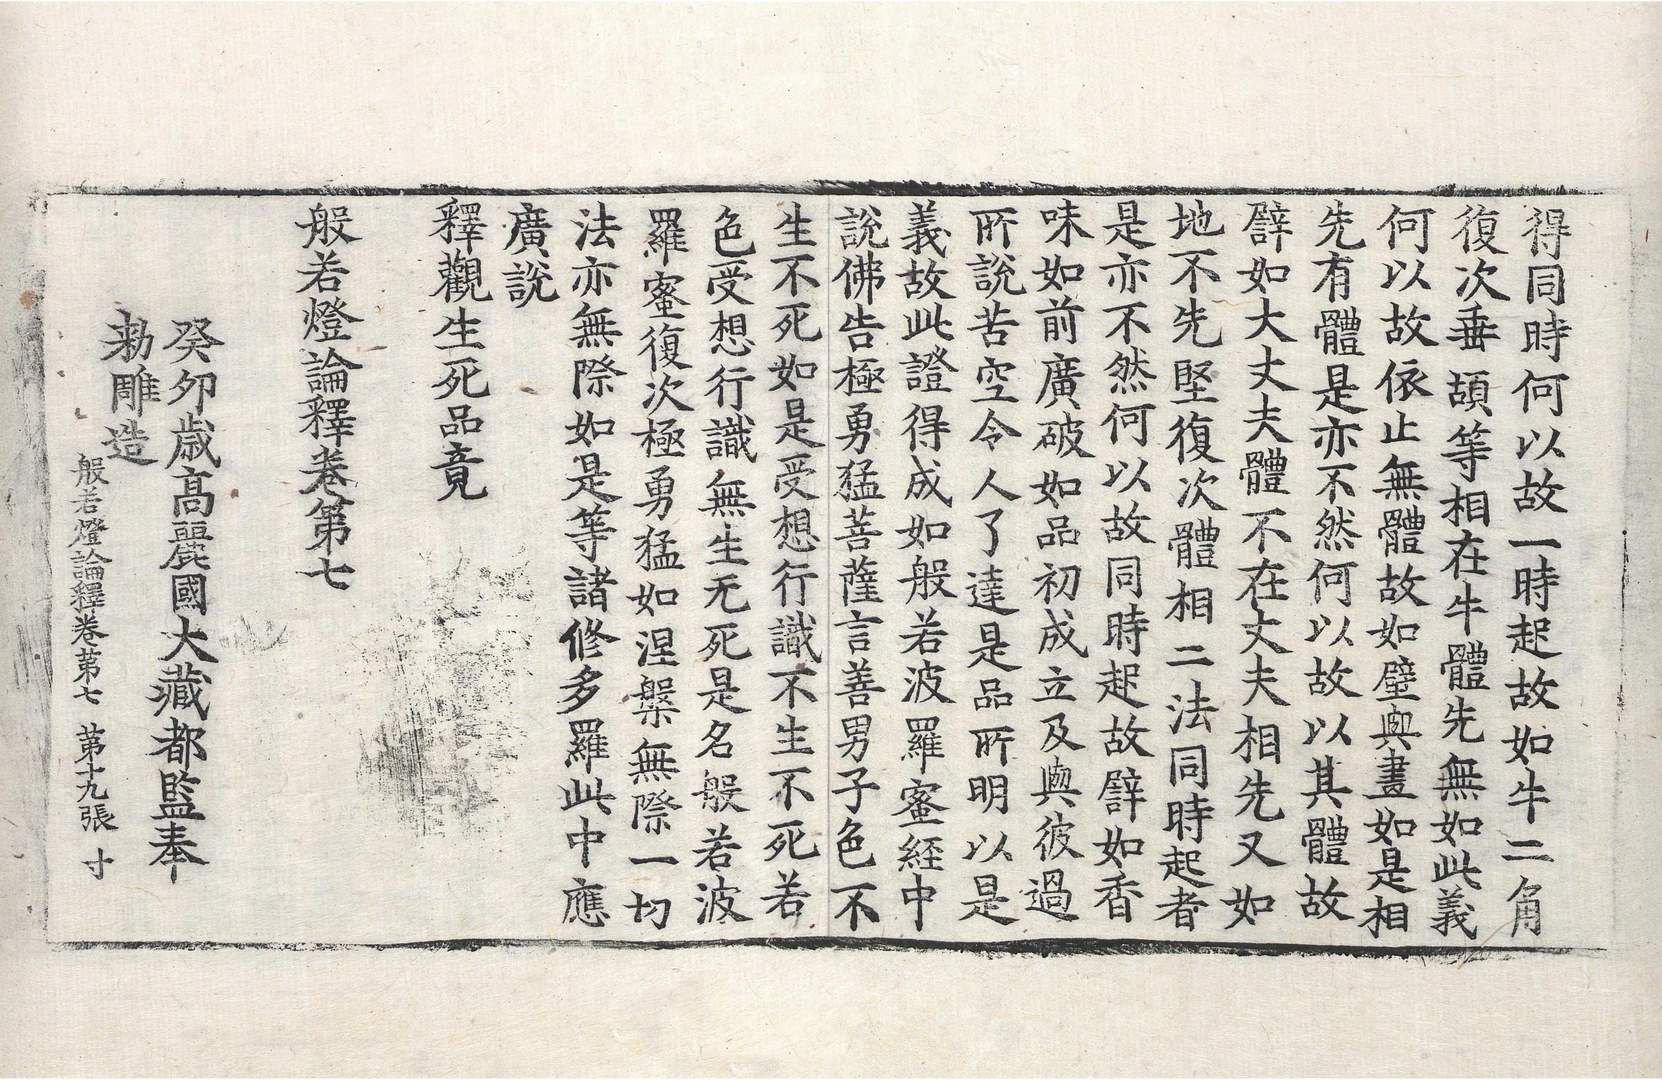 得同時何以故一時起故如牛二角
復次垂頡等相在牛體先無如此義
何以故依止無體故如壁與畫如是相
先有體是亦不然何以故以其體故
譬如大丈夫體不在丈夫相先又如
地不先堅復次體相二法同時起者
是亦不然何以故同時起故譬如香
味如前廣破如品初成立及與彼過
所說苦空令人了達是品所明以是
義故此證得成如般若波羅蜜經中
說佛告極勇猛菩薩言善男子色不
生不死如是受想行識不生不死若
色受想行識無生无死是名般若波
羅蜜復次極勇猛如涅槃無際一切
法亦無際如是等諸修多羅此中應
廣說
釋觀生死品竟
般若燈論釋卷第七
癸卯歲高麗國大藏都監奉
勅雕造
般若燈論釋卷第七 第十九張 寸